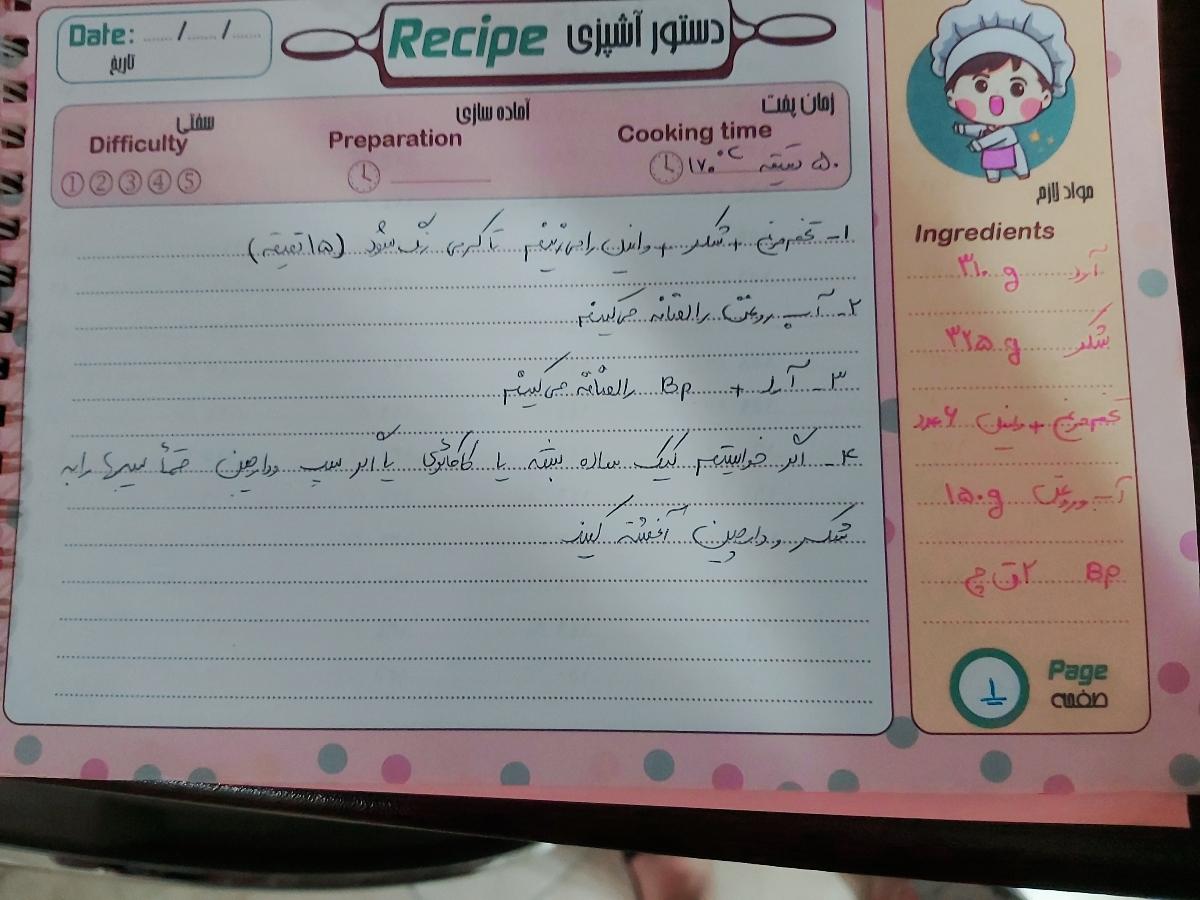 Date: ...... / ...... / ......
تاریخ
Recipe دستور آشپزی
سختی
Difficulty
① ② ③ ④ ⑤
آماده سازی
Preparation
زمان پخت
Cooking time
۵۰ دقیقه ۱۷۰°C
۱- تخم مرغ + شکر + وانیل را می‌زنیم تا کرمی رنگ شود (۱۵ دقیقه)
۲- آب روغن را اضافه می‌کنیم
۳- آرد + Bp را اضافه می‌کنیم
۴- اگر خواستیم کیک ساده بشه یا کاکائوی یا اگر سیب ودارچین حتماً سیبها رابه
شکر و دارچین آغشته کنید
مواد لازم
Ingredients
آرد ۳۱۰ g
شکر ۳۲۵ g
تخم مرغ + وانیل ۶ عدد
آب وروغن ۱۵۰ g
Bp ۲ ق چ
Page ۱
صفحه